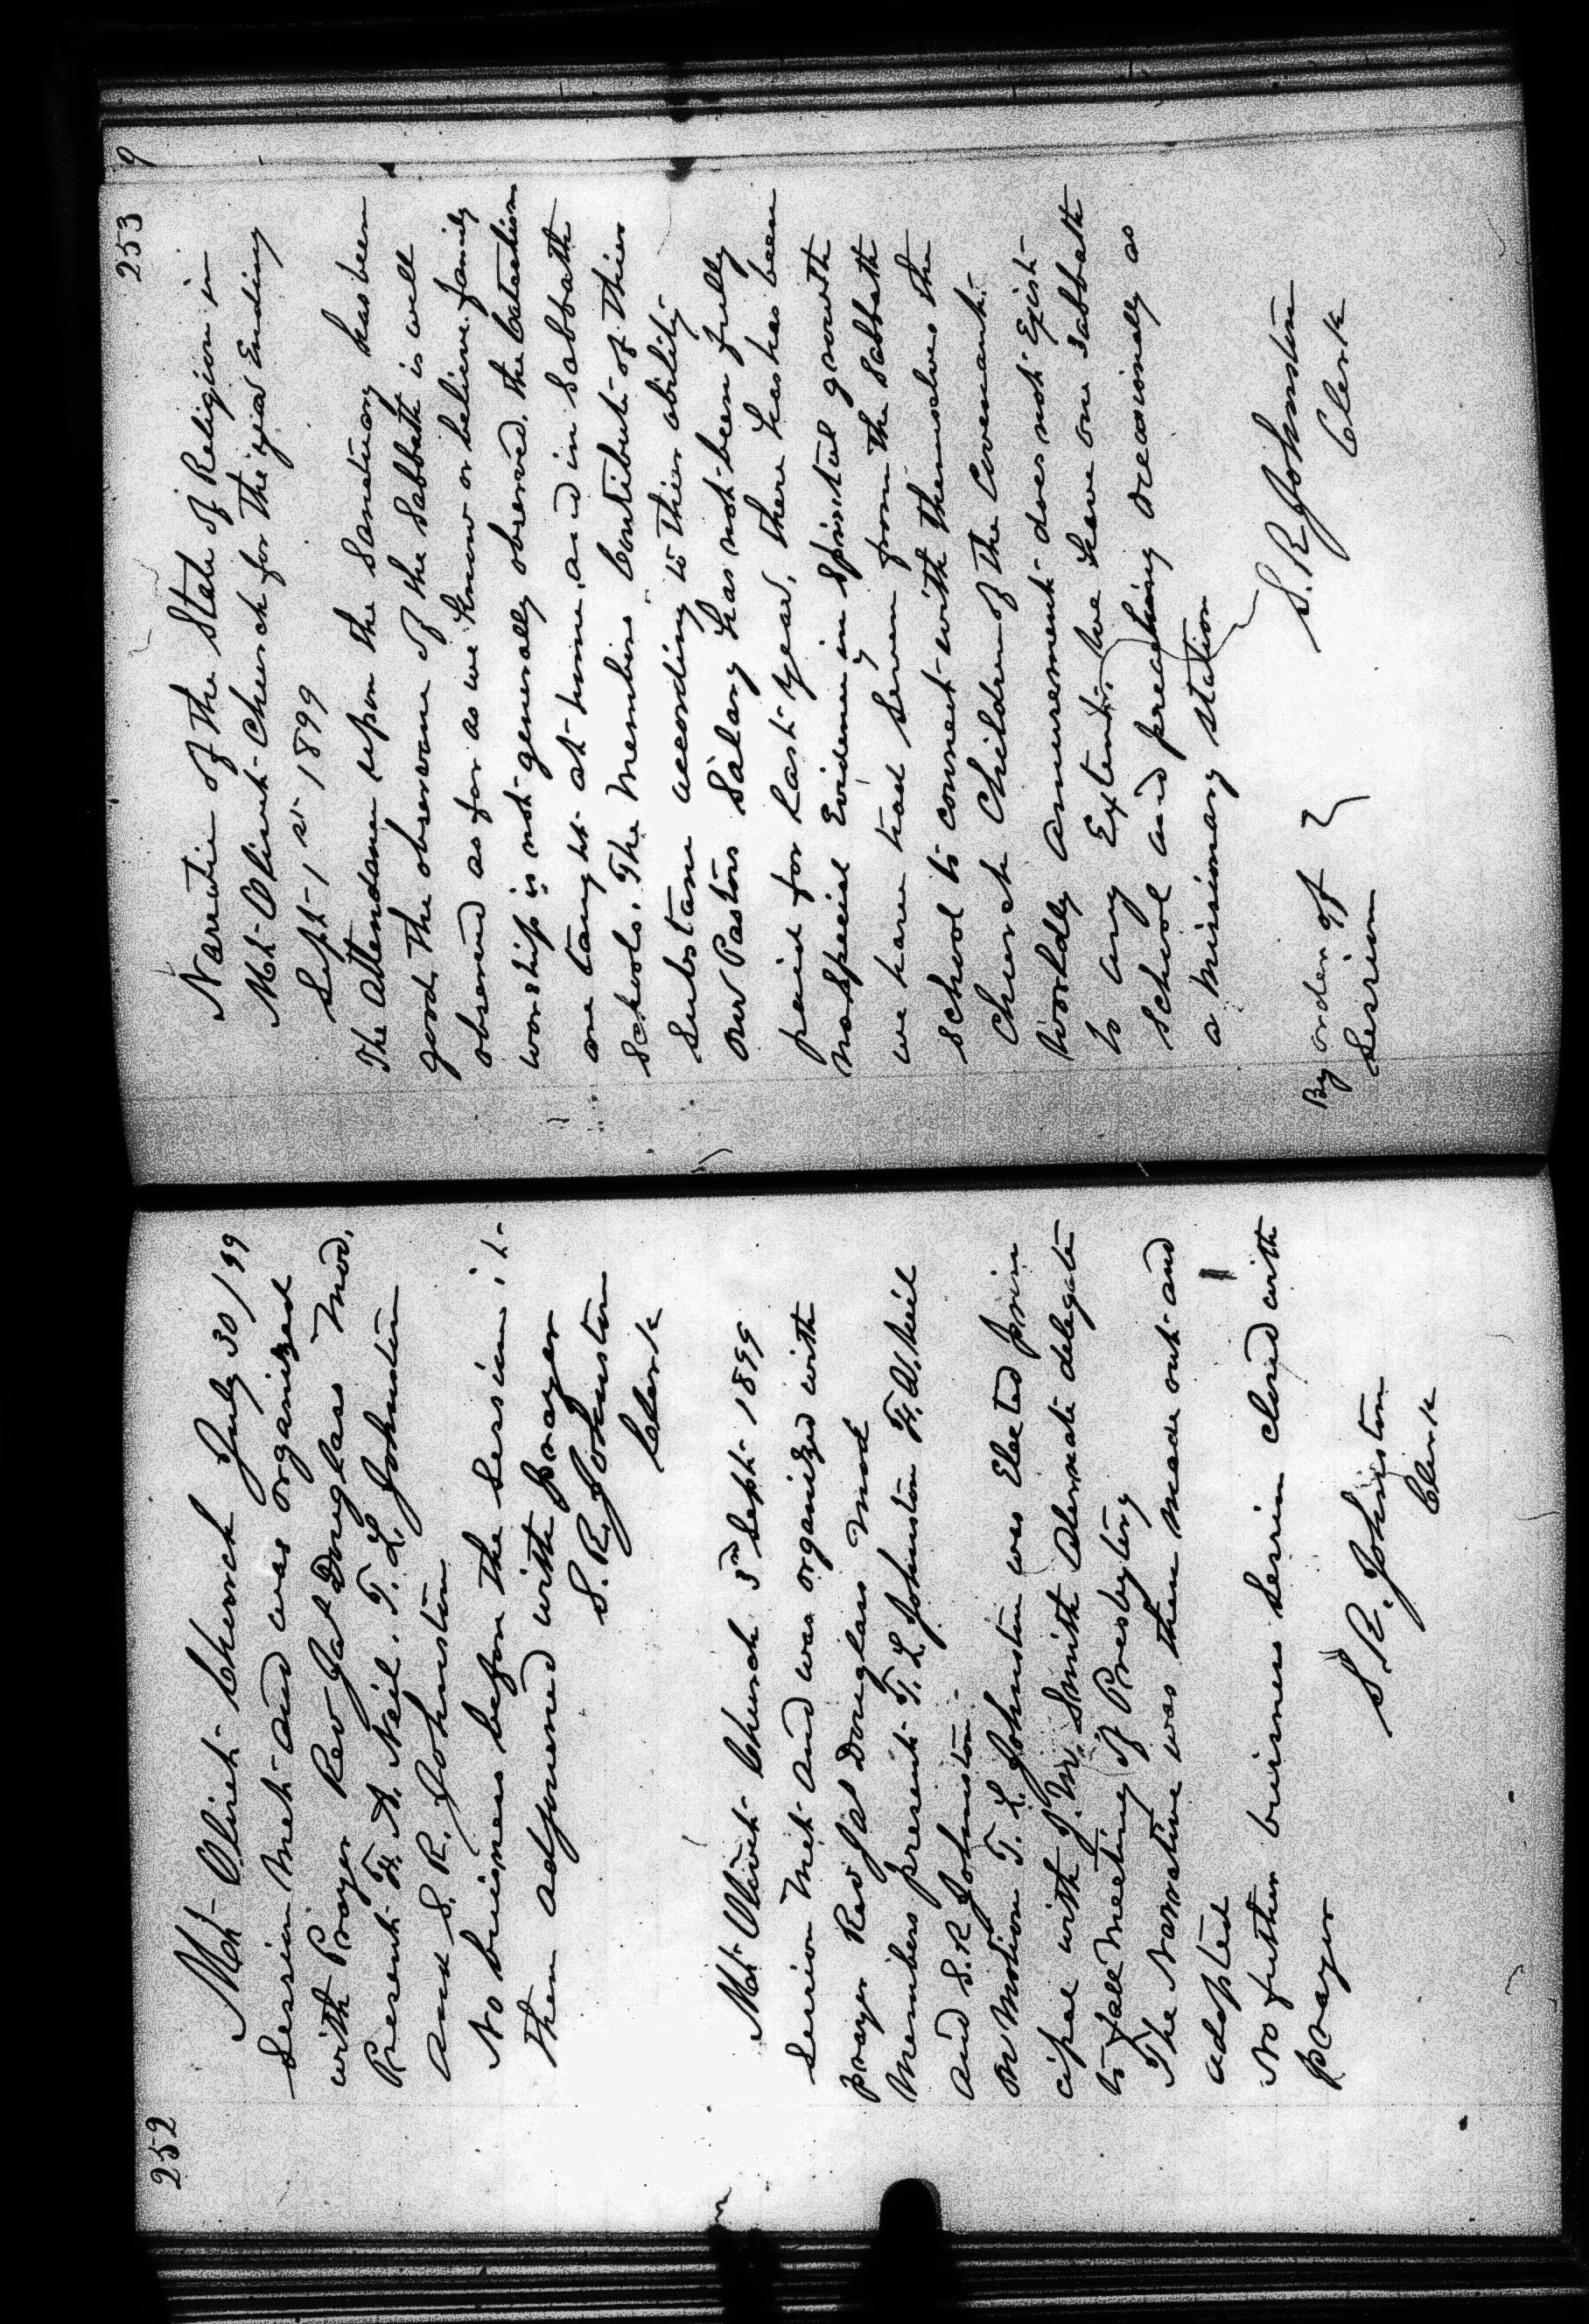 252
Mt Olivet Church July 30/99
Session met and was organized
with Prayer Rev Jas Douglass Mod.
Present F. A. Neil. T. L. Johnston
and S. R. Johnston
No buisness before the session it
then adjourned with prayer
S. R. Johnston
Clerk
Mt Olivet Church 3rd Sept 1899
Session met and was organized with
prayer Rev Jas Douglass Mod
Members present T. L Johnston F. A. Neil
and S. R Johnston.
on Motion T. L. Johnston was Elected prin
cipal with J. M. Smith Alternate delegate
to fall meeting of Presbytery
The Narrative was then made out and
adopted
No futher buisness Session closed with
prayer
S. R. Johnston
Clerk
253
9
Narrative of the State of Religion in
Mt Olivet Church for the year Ending
Sept 1st 1899
The Attendance upon the Sanctuary has been
good. The observance of the Sabbath is well
observed as far as we know or believe. family
worship is not generally observed. The Catechism
are taught at home, and in Sabbath
Schools. The Members Contribute of thier
Substance according to thier ability
our Pastors Salary has not been fully
paid for last year, there has has been
no special Evidence in Spiritul growth
we have had seven from the Sabbath
School to connect with themselves the
Church Children of the Covenant.
Worldly Amusement does not Exist
to any Extent, we have one Sabbath
School and preaching occasionaly as
a missionary station
By order of
Session
S. R Johnston
Clerk